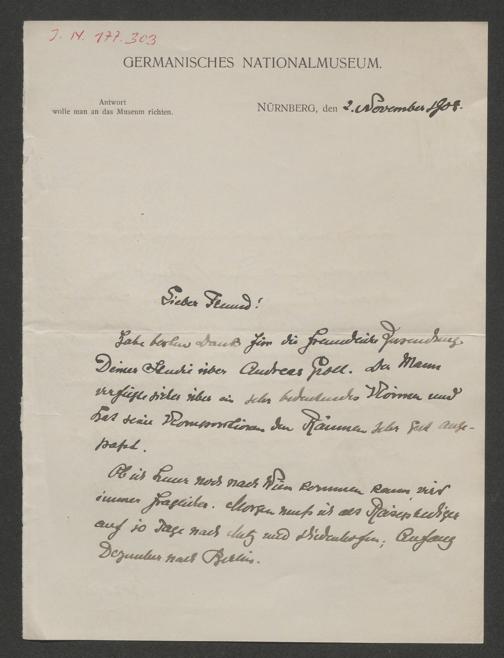 J. N. 177.303
GERMANISCHES NATIONALMUSEUM.
Antwort
wolle man an das Museum richten.
NÜRNBERG, den 2. November 1908.
Lieber Freund!
Habe besten Dank für die freundliche Zusendung
Deiner Studie über Andreas Groll. Der Mann
verfügte sicher über ein sehr bedeutendes Können und
hat seine Kompositionen den Räumen sehr gut ange-
paßt.
Ob ich heuer noch nach Wien kommen kann, wird
immer fraglicher. Morgen muß ich als Reiseprediger
auf 10 Tage nach Metz und Diedenhofen; Anfang
Dezember nach Berlin.